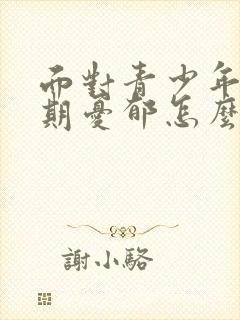 而對青少年
期憂郁怎麽
謝小駱